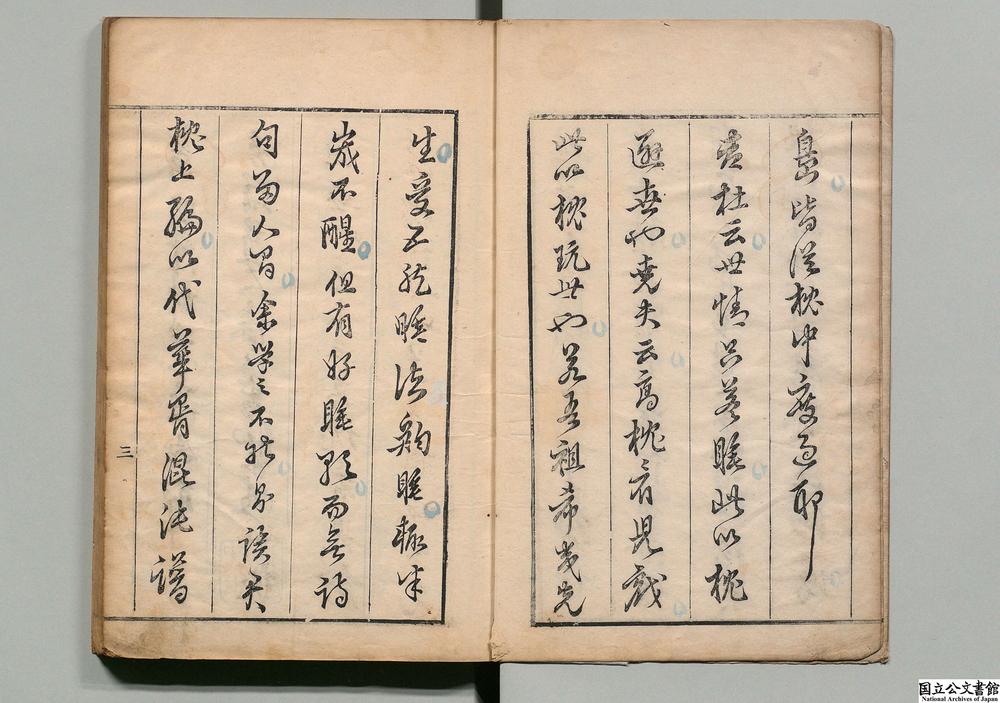 島皆從枕中度過耶
老杜云世情只益睡此以枕
逃世也堯夫云高枕看兒戲
此以枕玩世也若吾祖希夷先
生受五龍睡法動睡輒半
歲不醒但有好睡歌而無詩
句留人間余學之不能另謀矣
枕上編以代華胥混沌譜
三
国立公文書館
National Archives of Japan